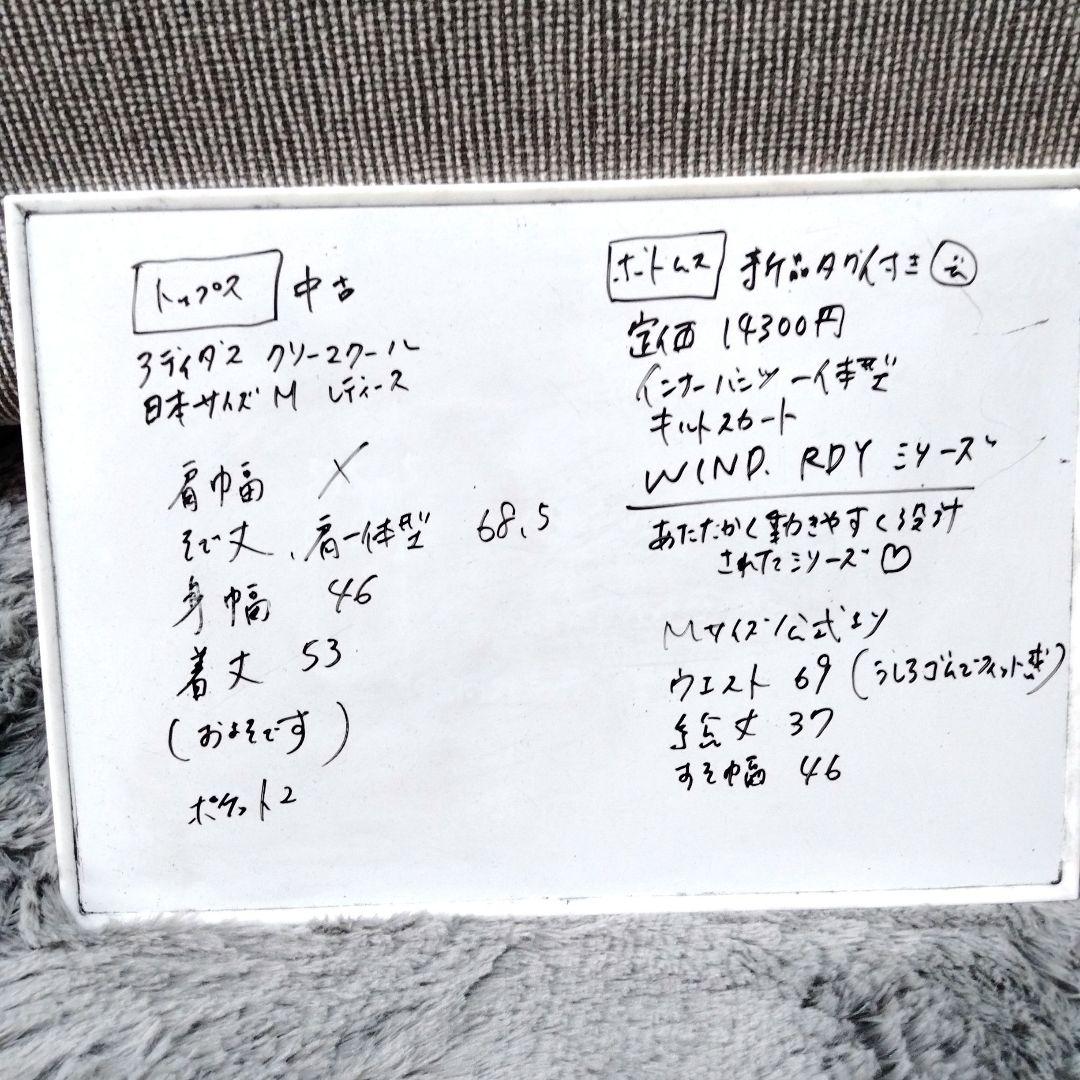 トップス 中古
アディダス クリースクール
日本サイズ M レディース
肩巾幅 ×
そで丈、肩一体型 68.5
身巾幅 46
着丈 53
(およそです)
ポケット2
ボートムス 新品タグ付き
定価 14300円
インナーパンツ一体型
キルトスカート
WIND. RDY シリーズ
あたたかく動きやすく設計
されたシリーズ♡
Mサイズ公式より
ウエスト 69 (うしろゴムでフィット感)
総丈 37
すそ巾幅 46